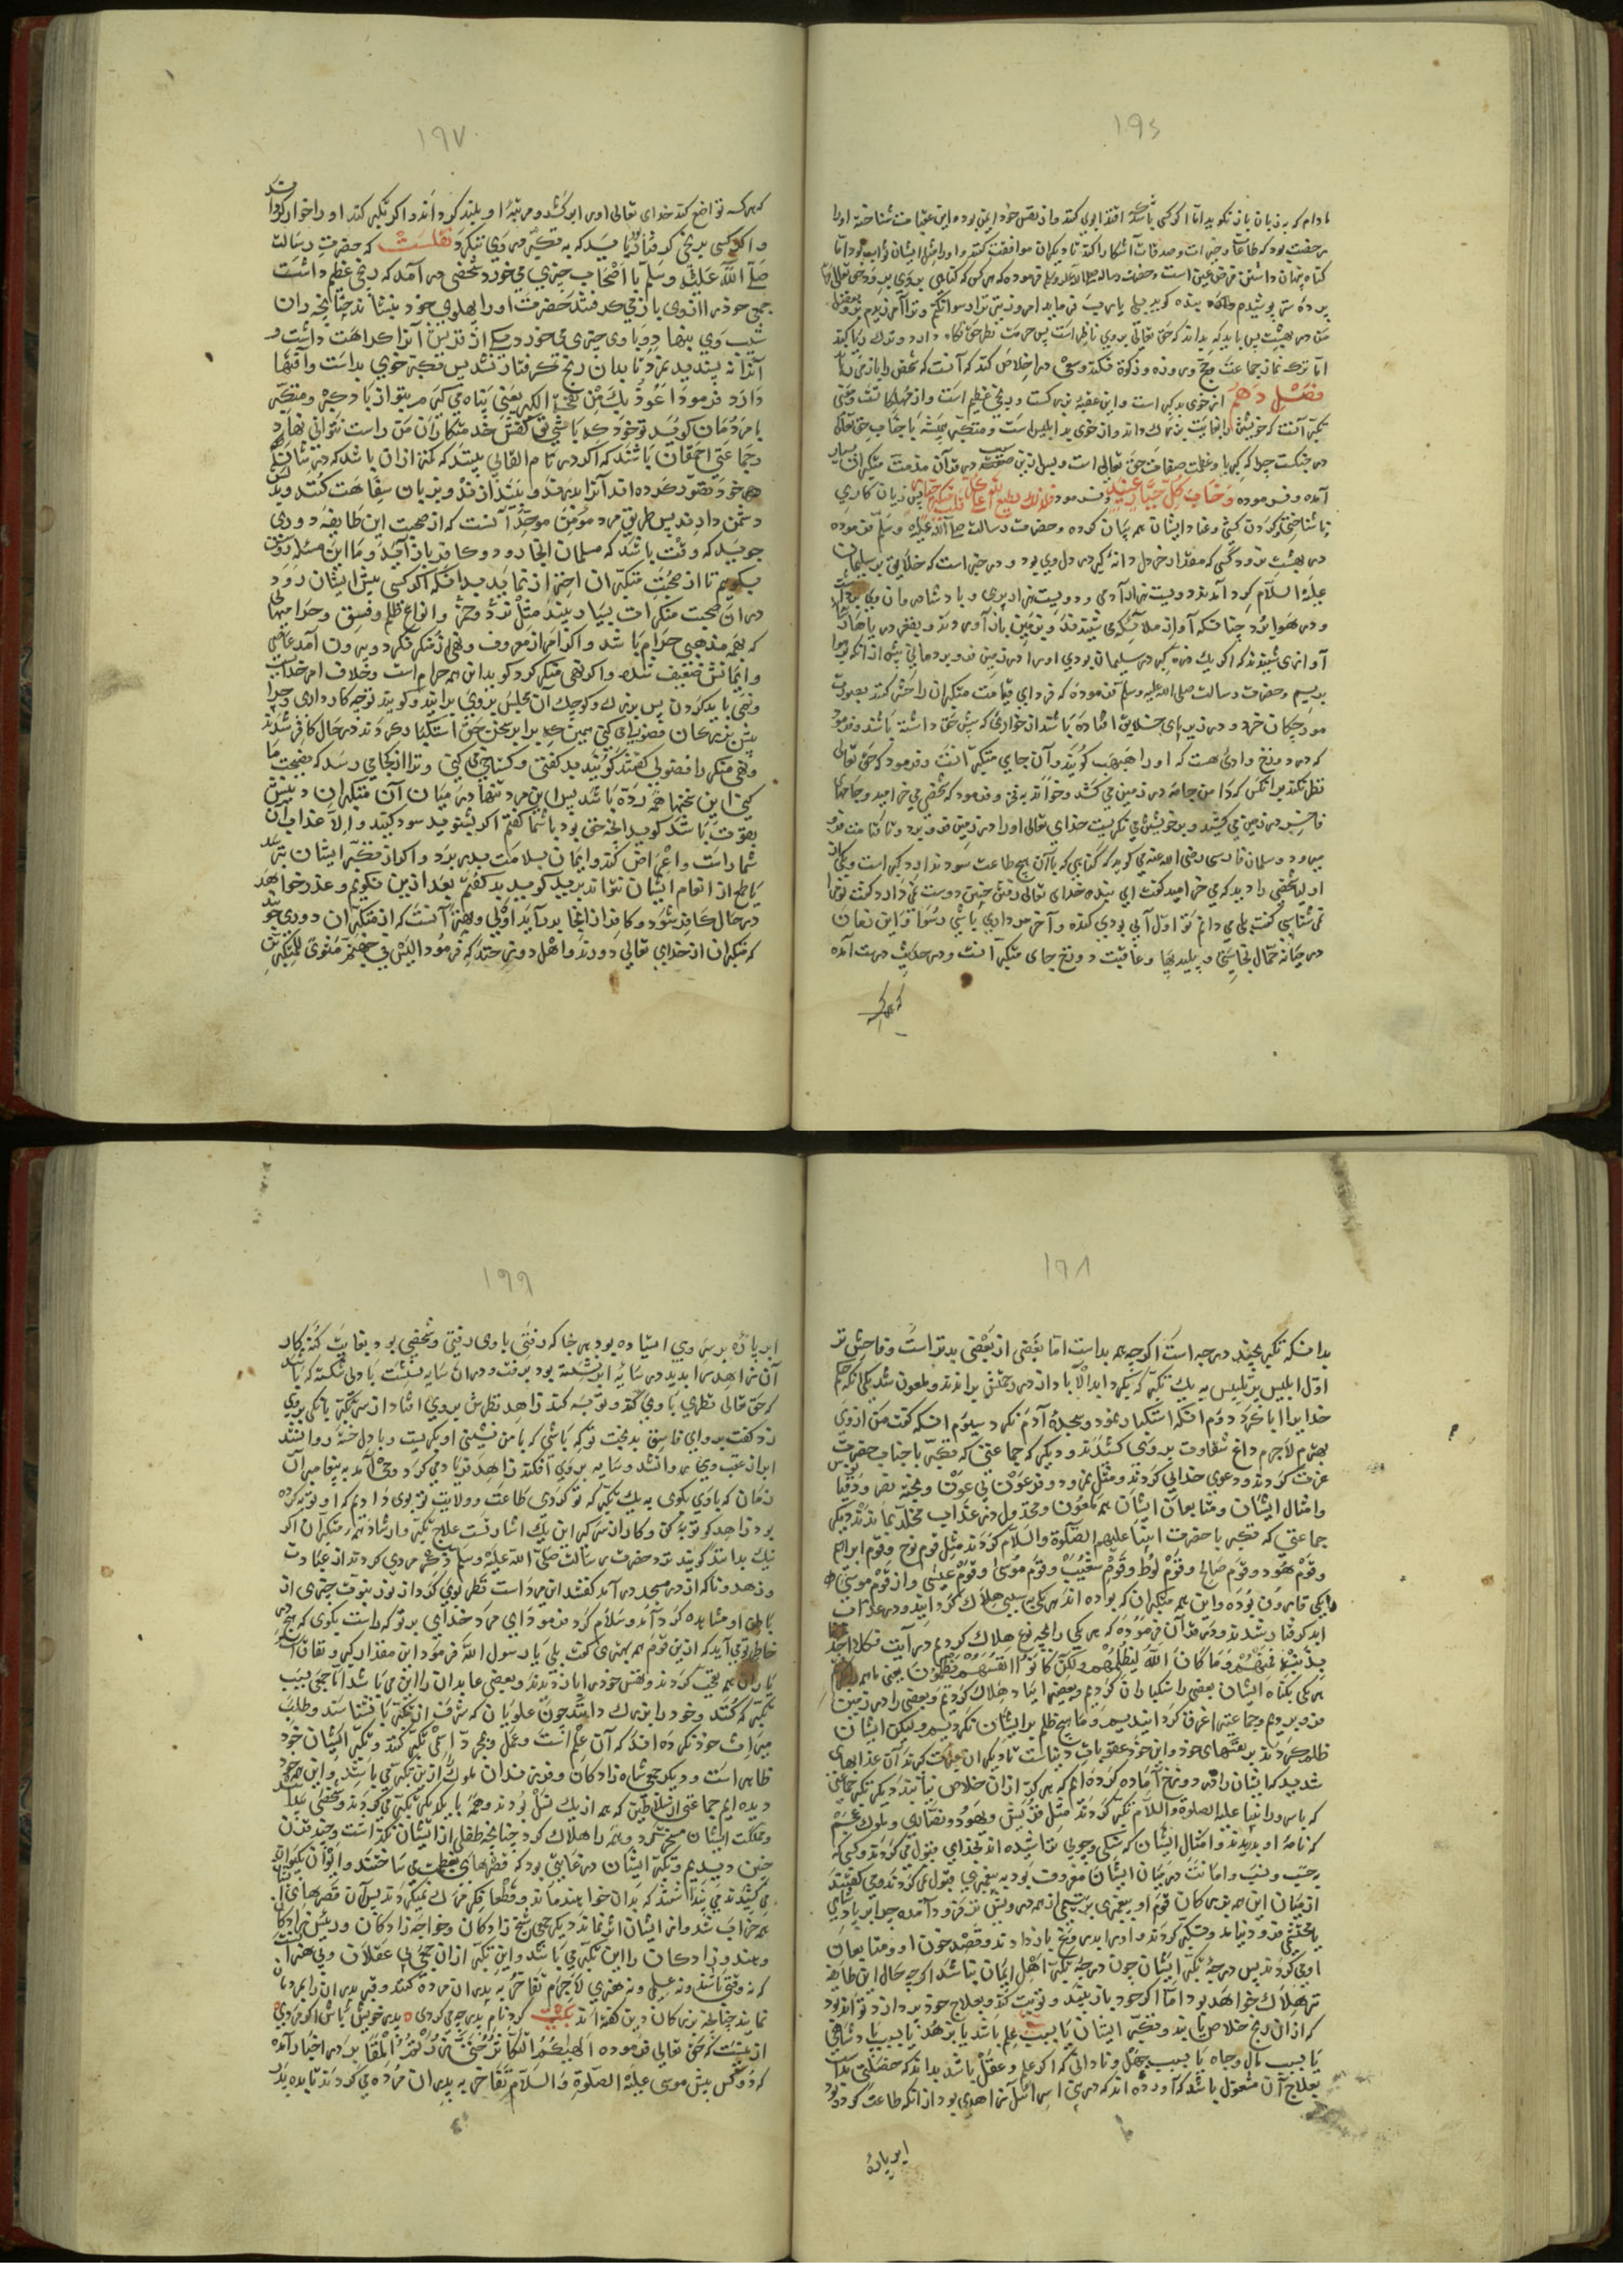 ۱۹۶
مادام که به زبان باز نکوید اما اکر کسی باشد که اقتدا بوی کنند و از نفس خود ایمن بود و این عبادت شناخته او را
رخصت بود که طاعات و خیرات و صدقات آشکارا کند تا دیکران موافقت کنند و او را مثل ایشان ثواب بود اما
کناه پنهان داشتن فرض عین است و حضرت رساله صلی الله علیه وسلم فرموده که هر کس که کناهی بروی برود حق تعالی
من در بهشت پس باید که بداند که حق تعالی بر وی ناظر است پس حرمت نظر حق نکاه دارد و ترک ریا کند
اما ترک نماز جماعت و حج و روزه و زکوة نکند و سعی در اخلاص کند که آنست که شخص را باز می دارد
فصل دهم از خوی بد کبر است و این عقبهٔ بزرکست و رنجی عظیم است و از مهلکاتست و معنی
تکبر آنست که خویشتن را بغایت بزرک داند و از خوی بد ابلیس است و متکبر همیشه با جناب حق تعالی
در جنکست چرا که کبریا و عظمت صفات حق تعالی است و بس از این سبب در قرآن مذمت متکبران بسیار
آمده و فرموده وَخَابَ کُلُّ جَبَّارٍ عَنِیدٍ و فرمود کذلک یطبع الله علی کل قلب متکبر جبار پس زیان کاری
و ناشناختن و کردن کشی و عناد ایشان همه بیان کرده و حضرت رسالت صلی الله علیه وسلم فرموده
در بهشت نرود کسی که مقدار خردل دانهٔ کبر در دل وی بود و در خبر است که خلایق بر سلیمان
علیه السلام کرد آمدند دویست هزار آدمی و دویست هزار پری و باد شاد روان وی برداشت
و در هوا برد چنانکه آواز ملائکه می شنیدند و بزمین باز آوردند و بقعر دریاها
آوازی شنیدند که اکر یک ذره کبر در سلیمان بودی او را در زمین فرو بردمانی پیش از آنکه بهوا
بردیم و حضرت رسالت صلی الله علیه وسلم فرموده که فردای قیامت متکبران را حشر کنند بصورت
مورچکان خرد و در زیر پای خلایق افتاده باشند از خواری که پیش حق داشته باشند و فرمود
که در دوزخ وادی هست که او را هبهب کویند و آن جای متکبرانست و فرمود که حق تعالی
نظر نکند بر آنکس که دامن جامه در زمین می کشد و خوامد به فخر و فرمود که شخصی می خرامید و جامهای
فاخر در زمین می کشید و بر خویشتن می نکریست خدای تعالی او را در زمین فرو برد و تا قیامت فرو
میرود و سلمان فارسی رضی الله عنه می کوید که کناهی که با آن هیچ طاعت سود ندارد کبر است و یکی از
اولیا شخصی را دید که می خرامید کفت ای بنده خدای تعالی رفتن چنین دوست نمی دارد کفت تو مرا
نمی شناسی کفت بلی می دانم تو اول آبی بودی کنده و آخر مرداری باشی رسوا و این زمان
در میانه حمال نجاستی و پلیدیها و عاقبت دوزخ جای متکبرانست و در حدیث درست آمده
که هر که
۱۹۷
که هر که تواضع کند خدای تعالی او را برکشد و مرتبهٔ او بلند کرداند و اکر تکبر کند او را خوار کرداند
و اکر کسی برنجی کرفتار بود نباید که به تکبر در وی نکرد نقلست که حضرت رسالت
صلی الله علیه وسلم با اصحاب چیزی می خورد و شخصی در آمد که رنجی عظیم داشت
جمعی خود را از وی باز می کرفتند حضرت او را پهلوی خود بنشاند چنانچه ران
شریف وی بنهاد و با وی چیزی می خورد و یکی از قریش آنرا کراهت داشت و
آنرا نه پسندید نمرد تا بدان رنج کرفتار نشد پس تکبر خوی بد است و آفتها
دارد فرمود اَعُوذُ بِكَ مِنْ نَفْخَةِ الْكِبْرِ یعنی پناه می کیرم بتو از باد کبر و متکبر
با مردمان کوید تو خود که باشی تو کفش خدمتکاران من راست نتوانی نهاد
و جماعتی احمقان باشند که اکر در تمام القابی بینند که کمتر از آن باشد که در شان
خود تصور کرده اند آنرا بدرند و بیندازند و بزبان سفاهت کنند و بد
دشمن دارند پس طریق مرد مؤمن موحد آنست که از صحبت این طایفه دوری
جوید که وقت باشد که مسلمان آنجا رود و کافر باز آید و ما این مسئله روشن
بکوییم تا از صحبت متکبران احتراز نماید بدانکه اکر کسی پیش ایشان رود
در آن صحبت منکرات بسیار بیند مثل نرد و خمر و انواع ظلم و فسق و حرامها
که بهمه مذهبی حرام باشد و اکر امر معروف و نهی از منکر نکرد و بیرون آمد عاصی
و ایمانش ضعیف شد و اکر نهی منکر کرد کویند این همه حرام است و خلاف امر خداست
و نهی باید کردن پس بزرک و کوچک آن مجلس بر وی برآیند و کویند تو چه کار داری چرا
پیش بزرکان فضولی می کنی همین که برابر سخن حق استکبار کردند در حال کافر شدند
و نهی منکر را فضولی کفتند کویند بد کفتی و کستاخی می کنی و ترا از کجا می رسد که نصیحت ما
کنی این سخنها همه ردّه باشد پس این مرد تنها در میان آن متکبران دینش
بقوت باشد کوید آنچه حق بود با شما کفتم اکر بشنوید سود کنید و الا عذاب آن
شما راست و اعراض کند و ایمان بسلامت بدر برد و اکر از تکبر ایشان بترسد
یا طمع از انعام ایشان نتواند برید کوید بد کفتم بعد ازین نکویم و عذر خواهد
در حال کافر شود و کافر از آنجا بدر آید اولی و بهتر آنست که از متکبران دوری جوید
که متکبران از خدای تعالی دورند و اهل دوزخ چنانکه فرمود الیس فی جهنم مثوی للمتکبرین
۱۹۸
بدانکه تکبر بچند درجه است اکرچه همه بد است اما بعضی از بعضی بدتر است و فاحش تر
اول ابلیس پرتلبیس به یک تکبر که بکرد ابد الآباد از در رحمتش براندند و ملعون شد یکی آنکه حکم
خدا را ابا کرد دوم آنکه استکبار نمود و سجدهٔ آدم نکرد سیوم آنکه کفت من از وی
بهترم لاجرم داغ شقاوت بر وی کشیدند و دیکر که جماعتی که تکبر با جناب حضرت
عزت کردند و دعوی خدایی کردند مثل نمرود و فرعون بی عون و بخت نصر و دقیانوس
و امثال ایشان و متابعان ایشان همه ملعون و مخذول در عذاب مخلد بماندند دیکر
جماعتی که تکبر با حضرت انبیا علیهم الصلوة والسلام کردند مثل قوم نوح و قوم ابراهیم
و قوم هود و قوم صالح و قوم لوط و قوم شعیب و قوم موسی و قوم عیسی و از قوم موسی
یکی قارون بوده و این همه متکبران که بوده اند هر یکی به سببی هلاک کردانید و در عذاب
ابد کرفتار شدند و در قرآن فرموده که هر یکی را بچه نوع هلاک کردیم در آیت فَکُلّاً اَخَذْنَا
بِذَنْبِهِ فَمِنْهُمْ وَمَا كَانَ اللَّهُ لِيَظْلِمَهُمْ وَلَكِنْ كَانُوا اَنْفُسَهُمْ يَظْلِمُونَ یعنی ما همه را
هر یکی بکناه ایشان بعضی را سنکباران کردیم و بعضی را بباد هلاک کردیم و بعضی را در زمین
فرو بردیم و جماعتی را غرق کردانیدیم و ما هیچ ظلم بر ایشان نکردیم ولیکن ایشان
ظلم کردند بر نفسهای خود و این خود عقوبات دنیاست تا دیکران عبرت کیرند آن عذابهای
شدید که ایشان را در دوزخ آماده کرده ایم که هرکز از آن خلاص نیابند دیکر تکبر جماعتی
که با سرور انبیا علیه الصلوة والسلام تکبر کردند مثل قریش و یهود و نصاری و ملوک عجم
که نامهٔ او بدریدند و امثال ایشان که سنکی و چوبی تراشیده اند بخدایی قبول می کردند و کسی که
بحسب و نسب و امانت در میان ایشان معروف بود به پیغمبری قبول نمی کردند و می کفتند
از میان این همه بزرکان قوم او پیغمبری بر یتیمی از همه درویش تر فرود آمده چرا بر پادشاهی
یا محتشمی فرو نیامد و تکبر کردند و او را بدروغ باز دادند و قصد خون او و متابعان
او می کردند پس درجهٔ تکبر ایشان چون درجهٔ تکبر اهل ایمان نباشد اکرچه حال این طایفه
نیز هلاک خواهد بود اما اکر خود باز بیند و توبت کند و بعلاج خود بردازد تواند بود
که از آن رنج خلاص یابد و تکبر ایشان یا بسبب علم باشد یا بزهد یا بسبب پادشاهی
یا بسبب مال و جاه یا بسبب جهل و نادانی که اکر علم و عقل باشد بداند که خصلتی بد است
بعلاج آن مشغول باشد که آورده اند که در بنی اسرائیل زاهدی بود از آنکه طاعت کرده بود
ابر پارهٔ
۱۹۹
ابر پاره بر سر وی استاده بود هر جا که رفتی با وی رفتی و شخصی بود بغایت کنه کار
آن زاهد را بدید در سایهٔ ابر نشسته بود برفت و در آن سایه بنشست با دلی شکسته که باشد
که حق تعالی نظری با وی کند و توبه کند زاهد نظرش بر وی افتاد از سر تکبر بانکی بر وی
زد کفت برو ای فاسق بدبخت تو که باشی که با من نشینی او بکریست و با دل خسته روانه شد
ابر از عقب وی روانه شد و سایه بر وی افکند زاهد فریاد می کرد وحی آمد به پیغامبر آن
زمان که با وی بکوی به یک تکبر که تو کردی طاعت و ولایت تو بوی دادیم که او توبه کرده
بود زاهد کو توبه کن و کار از سر کیر این یک اشارتست علاج تکبر و ارشاد بهر متکبران اکر
نیک بدانند کویند نزد حضرت رسالت صلی الله علیه وسلم ذکر مردی کردند از عبادت
و زهد و ناکاه از در مسجد در آمد کفتند این مرد است نظر بوی کرد از نور نبوت چیزی از
باطن او مشاهده کرد و سلام کرد فرمود ای مرد خدای بر تو که راست بکوی که هیچ در
خاطر تو می آید که ازین قوم همه بهتری کفت بلی یا رسول الله فرمود این مقدار کبر و نفاق است
یاران همه تعجب کردند و نفس خود را باز دیدند و بعضی عابدان را این می باشد اما جمعی بسبب
تکبر که کنند و خود را بزرک دانند چون علویان که شرف از تکبر باز نشناسند و طلب
میراث خود نکرده اند که آن علم است و عمل و بمجرد اسمی تکبر کنند و تکبر ایشان خود
ظاهر است و دیکر جمعی شاه زادکان و فرزندان ملوک را ازین تکبر می باشد و این
دیده ایم جماعتی از سلاطین که همه از یک نسل بودند و همه با یکدیکر تکبر می کردند و شخصی
و مملکت ایشان مسخر کرد و همه را هلاک کرد چنانچه طفلی از ایشان نکذاشت و چند قرن
چنین دیدیم و تکبر ایشان در غایتی بود که قصرهای بعظمت می ساختند و ایوان بکیوان
می کشیدند می پنداشتند که بدان خواهند ماند و قطعا فکر مرک نمی کردند پس آن قصرهای ایشان
همه خراب شد و از ایشان اثر نماند دیکر جمعی شیخ زادکان و خواجه زادکان و رئیس زادکان
و هنر زادکان را این تکبر می باشد و این تکبر از آن جمعی بی عقلان و بی هنران
که نه وقتی باشد و نه علمی و نه هنری لاجرم تفاخر به پدران مرده کنند و قبر پدران را بمردمان
نمایند چنانچه بزرکان دین کفته اند بیت کرد نام پدر چه می کردی ٥ پدر خویش باش اکر مردی ٥
ازینست که حق تعالی فرموده اَلْهٰیکُمُ التَّکَاثُرُ حَتّٰی زُرْتُمُ الْمَقَابِرَ در اخبار آمده
که دو کس پیش موسی علیه الصلوة والسلام تفاخر به پدران مرده می کردند تا بده پدر